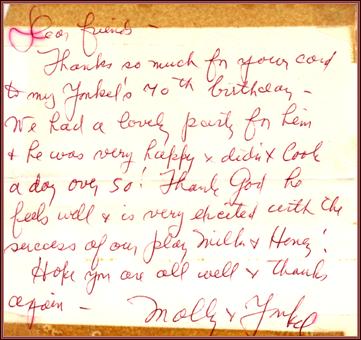 Dear friends -
Thanks so much for your card
to my Yonkel's 70th birthday -
We had a lovely party for him
& he was very happy & didn't look
a day over 50! Thank God he
feels well & is very elected with the
success of our play Milk & Honey!
Hope you are all well & thanks
again - Molly & Yonkel